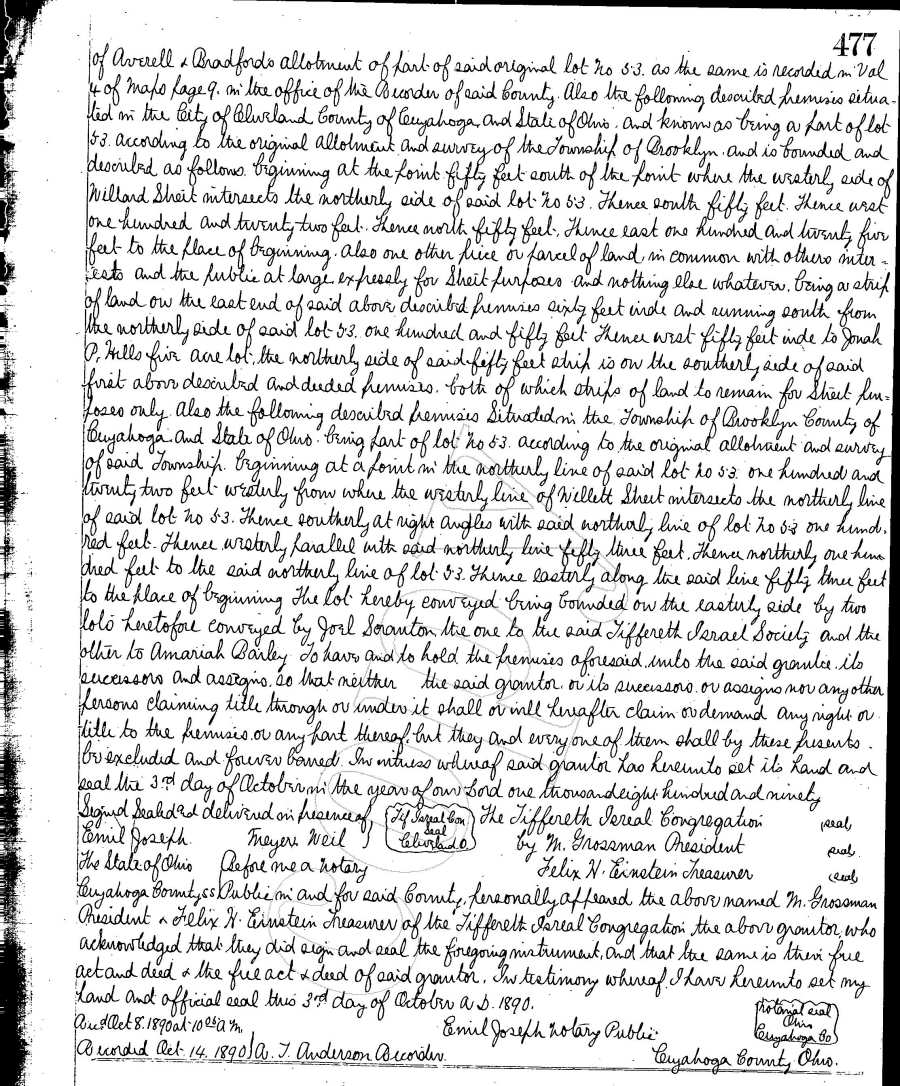 477
of Averell & Bradfords allotment of part of said original lot No 53. as the same is recorded in Vol
4 of Maps page 9. in the office of the Recorder of said County. Also the following described premises situa-
ted in the City of Cleveland County of Cuyahoga, and State of Ohio. and known as being a part of lot
53. according to the original Allotment and survey of the Township of Brooklyn. and is bounded and
described as follows. beginning at the point fifty feet south of the point where the westerly side of
Willard Street intersects the northerly side of said lot No 53. Thence south fifty feet. Thence west
one hundred and twenty two feet. Thence north fifty feet. Thence east one hundred and twenty five
feet to the place of beginning. Also one other piece or parcel of land, in common with others inter=
ests and the public at large, expressly for Street purposes and nothing else whatever. being a strip
of land on the east end of said above described premises sixty feet wide and running south from
the northerly side of said lot 53. one hundred and fifty feet Thence west fifty feet wide to Jonah
P. Hills five acre lot, the northerly side of said fifty feet strip is on the southerly side of said
first above described and deeded premises. both of which strips of land to remain for Street pur=
poses only. Also the following described premises Situated in the Township of Brooklyn County of
Cuyahoga and State of Ohio. being part of lot No 53. according to the original allotment and survey
of said Township. beginning at a point in the northerly line of said lot no 53. one hundred and
twenty two feet westerly from where the westerly line of Willett Street intersects the northerly line
of said lot No 53. Thence southerly at right angles with said northerly line of lot No 53 one hund.
red feet. Thence westerly parallel with said northerly line fifty three feet. Thence northerly one hun
dred feet to the said northerly line of lot 53. Thence easterly along the said line fifty three feet
to the place of beginning The lot hereby conveyed being bounded on the easterly side by two
lots heretofore conveyed by Joel Scranton the one to the said Tiffereth Israel Society and the
other to Amariah Bailey To have and to hold the premises aforesaid unto the said grantee. its
successors and assigns. so that neither the said grantor. or its successors. or assigns nor any other
persons claiming title through or under it shall or will hereafter claim or demand any right or
title to the premises. or any part thereof, but they and every one of them shall by these presents.
be excluded and forever barred. In witness whereof said grantor has hereunto set its hand and
seal the 3rd day of October in the year of our Lord one thousand eight hundred and ninety
Signed Sealed & delivered in presence of Tif Isreal Con seal Cleveland O The Tiffereth Isreal Congregation seal
Emil Joseph Meyer Weil by M. Grossman President seal
The State of Ohio Before me a Notary Felix H. Einstein Treasurer seal
Cuyahoga County, ss Public in and for said County, personally appeared the above named M. Grossman
President & Felix H. Einstein Treasurer of the Tiffereth Isreal Congregation the above grantor, who
acknowledged that they did sign and seal the foregoing instrument, and that the same is their free
act and deed & the free act & deed of said grantor. In testimony whereof, I have hereunto set my
hand and official seal this 3rd day of October A.D. 1890.
Recd Oct 8. 1890 at 10 A.M. Emil Joseph Notary Public
Notarial seal Ohio Cuyahoga Co
Recorded Oct. 14. 1890 A. T. Anderson Recorder. Cuyahoga County Ohio.